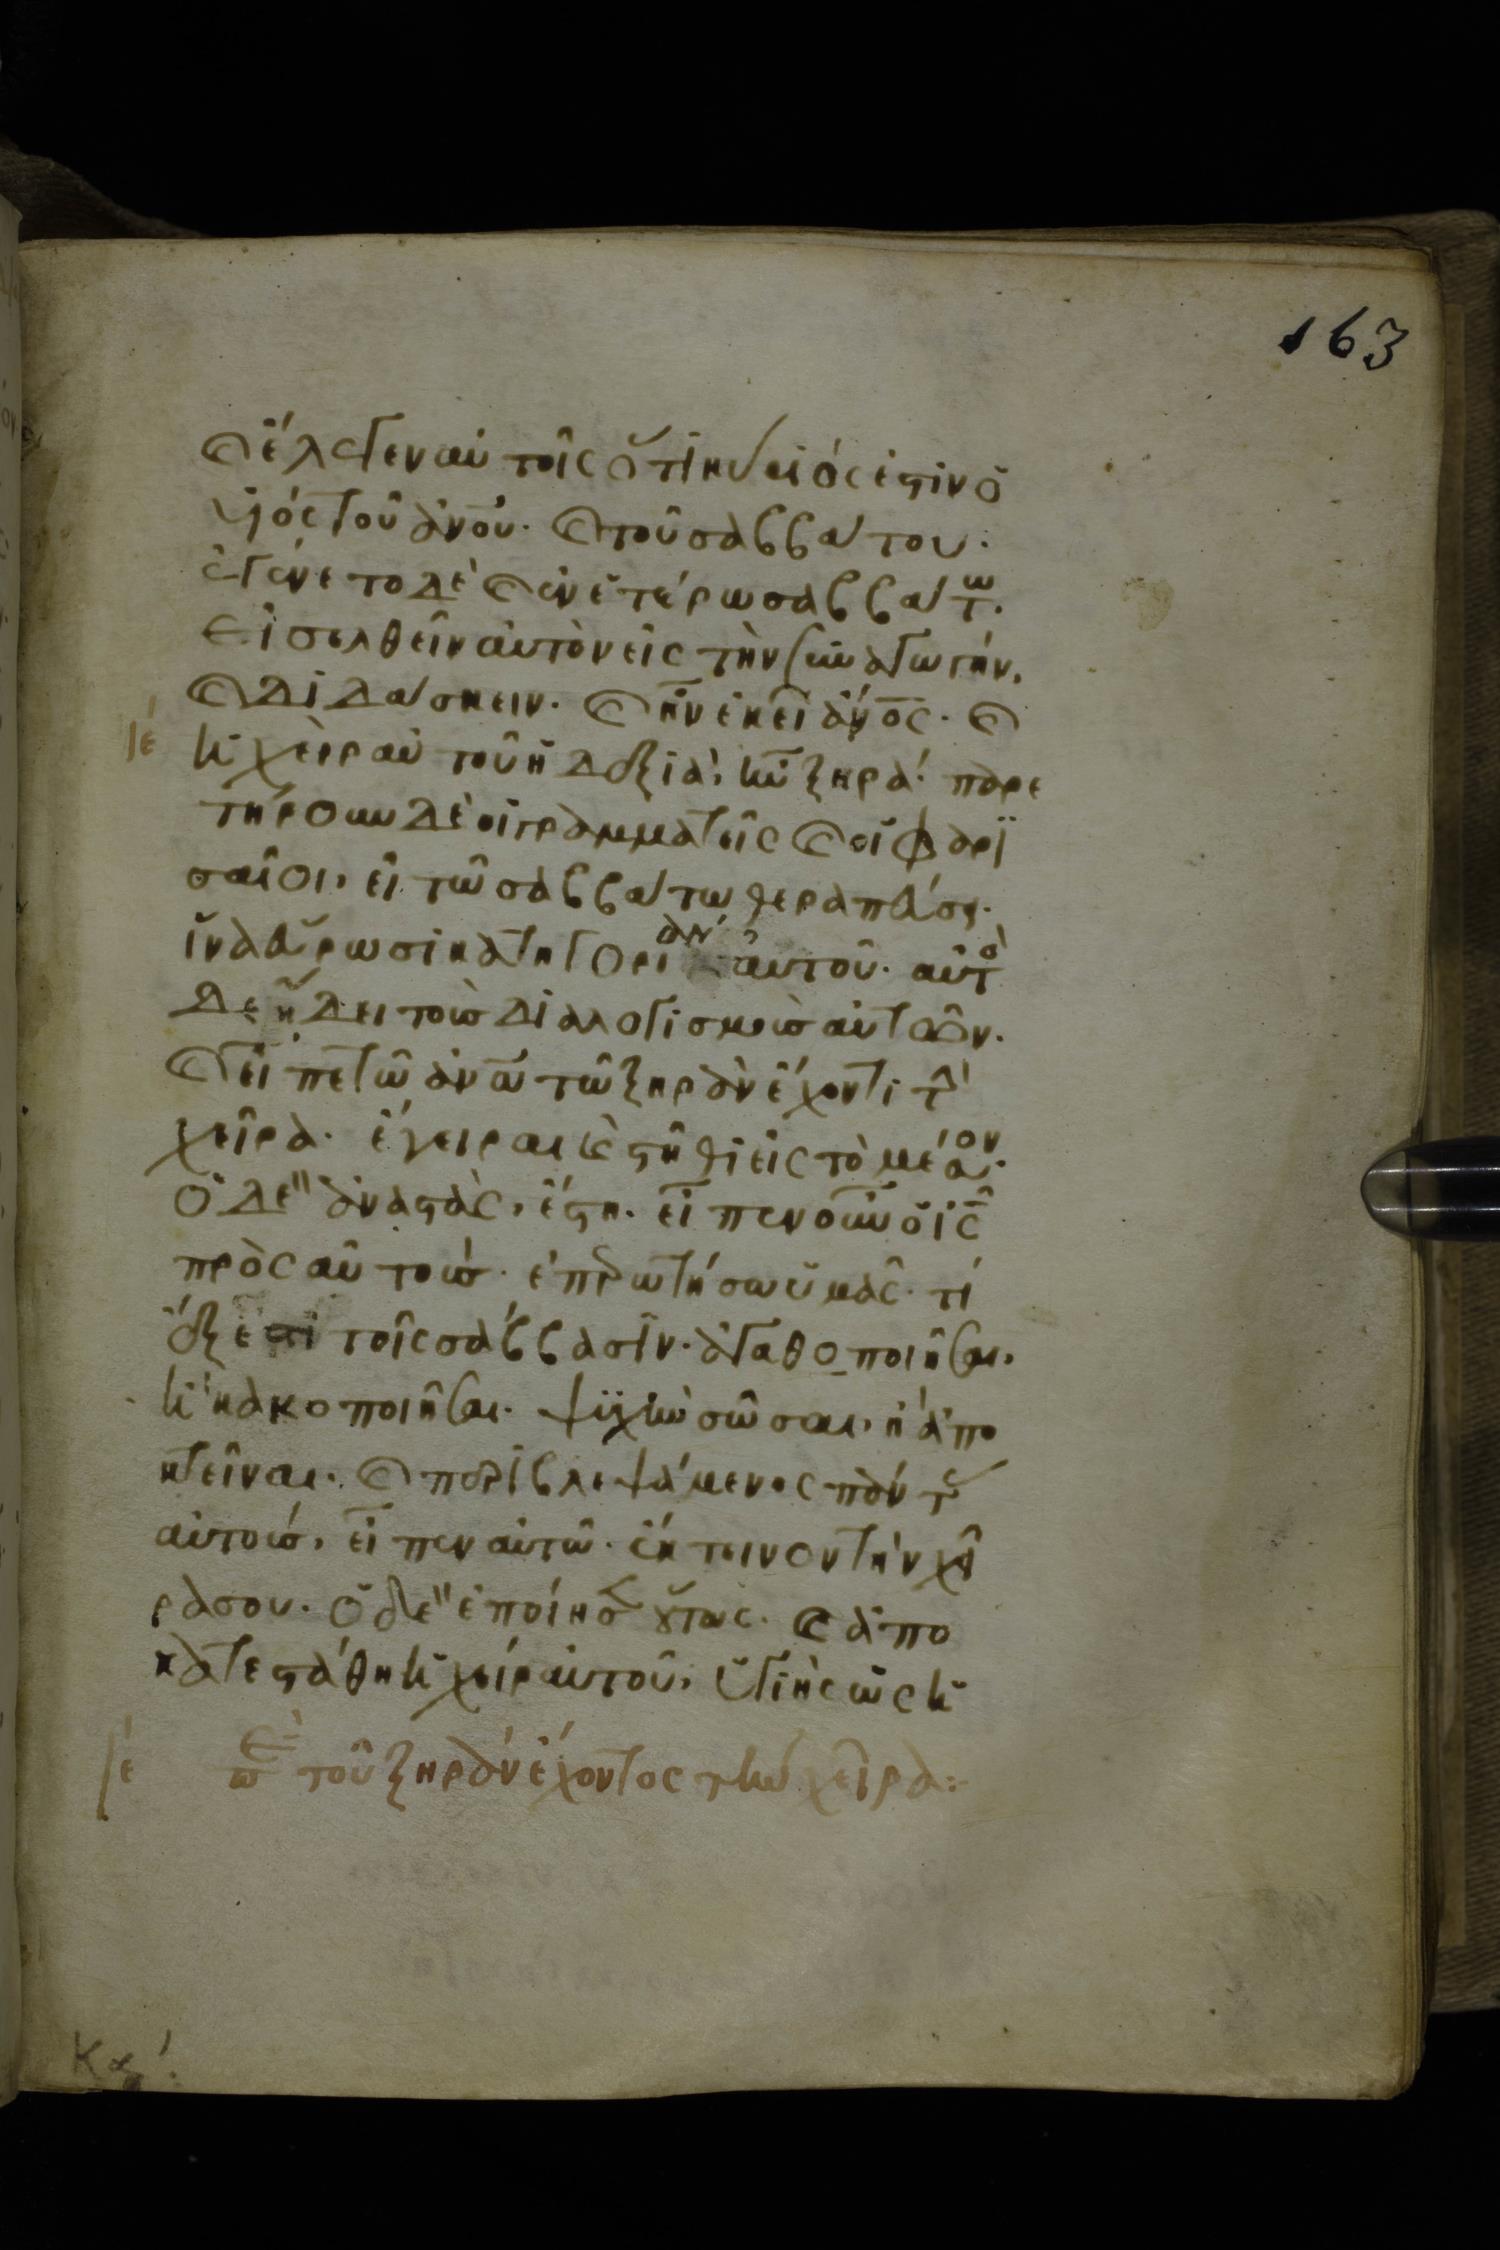 163
καὶ ἔλεγεν αὐτοῖς ὅτι κύριός ἐστιν ὁ
υἱὸς τοῦ ἀνου. καὶ τοῦ σαββάτου.
ἐγένετο δὲ καὶ ἐν ἑτέρω σαββάτω.
εἰσελθεῖν αὐτὸν εἰς τὴν συναγωγήν,
καὶ διδάσκειν. καὶ ἦν ἐκεῖ ἀνος. καὶ
ιέ ἡ χεὶρ αὐτοῦ ἡ δεξιὰ, ἦν ξηρά. παρε
τήρουν δὲ οἱ γραμματεῖς καὶ οἱ φαρι
σαῖοι, εἰ τῶ σαββάτω θεραπεύσει.
ἵνα εὕρωσι κατηγορίαν αὐτοῦ. αὐτὸς
δὲ ἤδει τοὺς διαλογισμοὺς αὐτῶν.
καὶ εἶπε τῶ ἀνω τῶ ξηρὰν ἔχοντι τὴν
χεῖρα. ἔγειραι καὶ στῆθι εἰς τὸ μέσον.
ὁ δὲ ἀναστὰς, ἔστη. εἶπεν οὖν ὁ ις
πρὸς αὐτούς. ἐπερωτήσω ὑμᾶς. τί
ἔξεστι τοῖς σάββασιν. ἀγαθοποιῆσαι,
ἢ κακοποιῆσαι. ψυχὴν σῶσαι, ἢ ἀπο
κτεῖναι. καὶ περιβλεψάμενος πάντας
αὐτούς, εἶπεν αὐτῶ. ἔκτεινον τὴν χεῖ
ρά σου. ὁ δὲ ἐποίησεν οὕτως. καὶ ἀπο
κατεστάθη ἡ χεὶρ αὐτοῦ, ὑγιὴς ὡς ἡ
ιέ περὶ τοῦ ξηρὰν ἔχοντος τὴν χεῖρα: